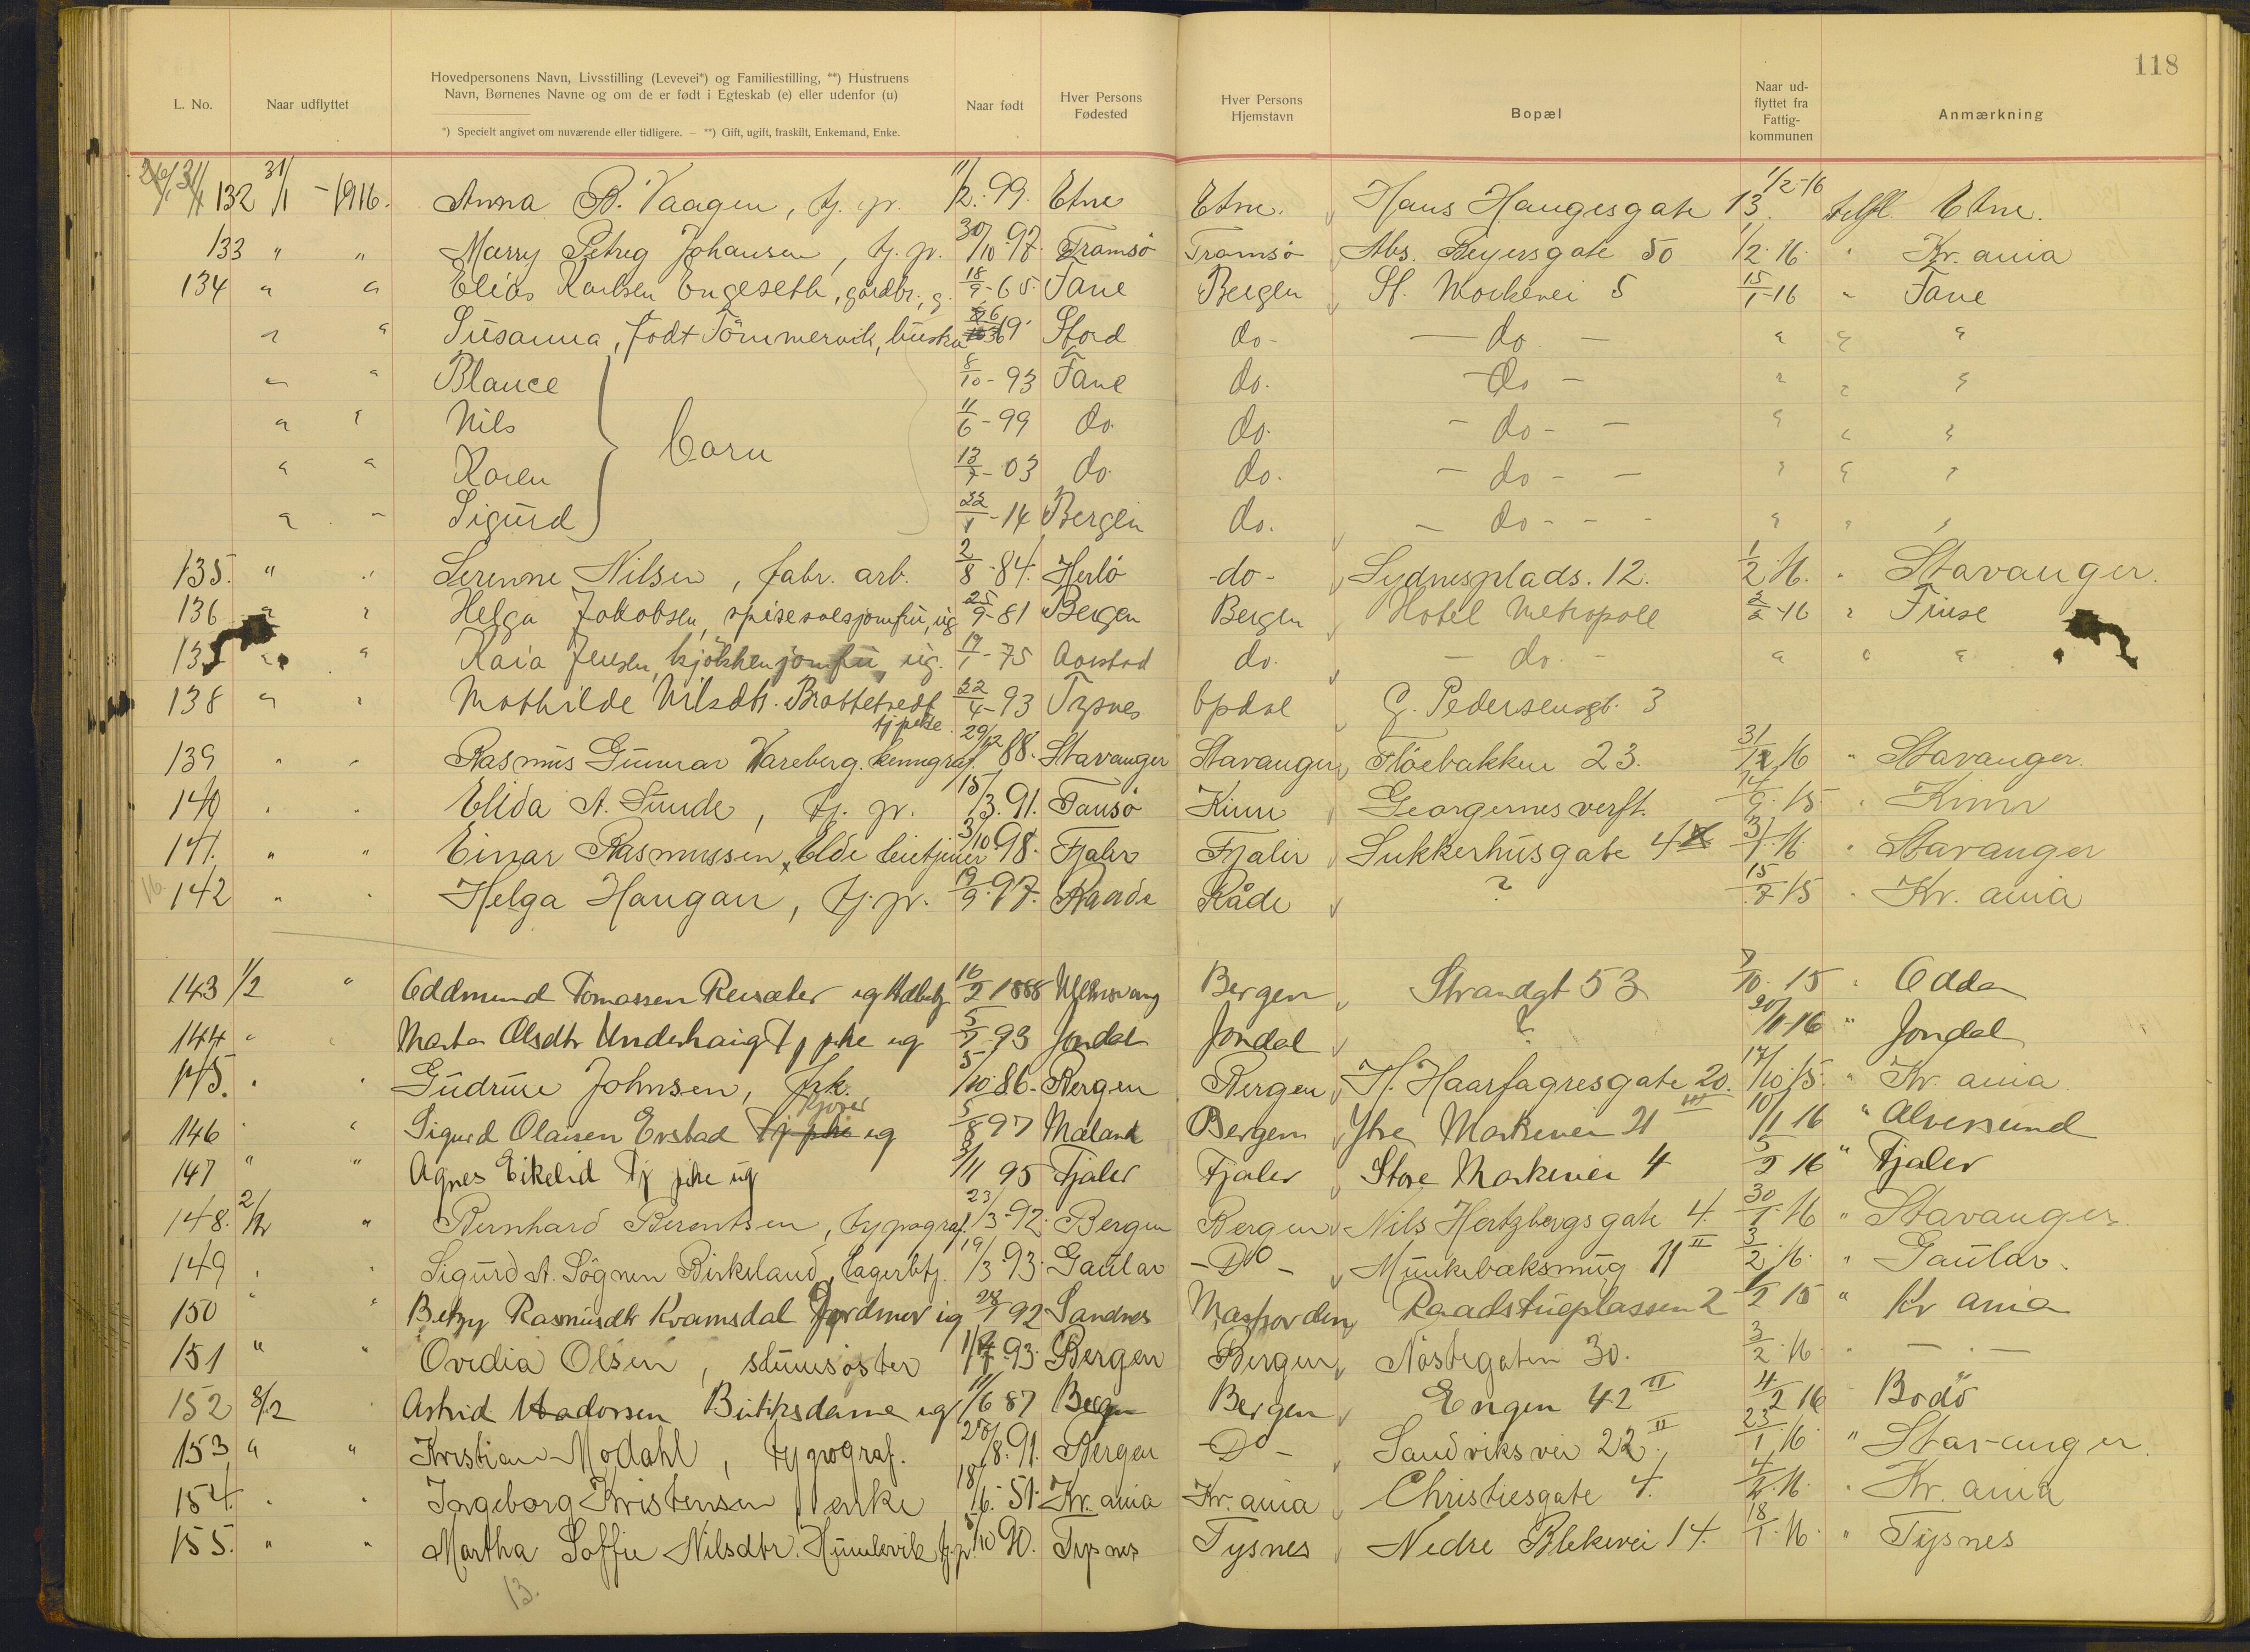 118
L. No.
Naar udflyttet
Hovedpersonens Navn, Livsstilling (Levevei*) og Familiestilling, **) Hustruens
Navn, Børnenes Navne og om de er født i Egteskab (e) eller udenfor (u)
*) Specielt angivet om nuværende eller tidligere. — **) Gift, ugift, fraskilt, Enkemand, Enke.
Naar født
Hver Persons
Fødested
Hver Persons
Hjemstavn
Bopæl
Naar ud-
flyttet fra
Fattig-
kommunen
Anmærkning
132 31/1 - 1916. Anna B. Vaagen, tj. pr. 11/2. 99. Etne Etne. Hans Haugesgate 13. 1/2-16 Etne.
133 " " Marry Petreg Johansen, tj. pr. 30/10 97. Tromsö Tromsö Abs. Beyersgate 50 1/2. 16. " Kr. ania
134 " " Elias Karlsen Engeseth, gårdbr., g. 18/9-65. Fane Bergen St. Markevei 5 15/1-16 " Fane
" " Susanna, födt Tömmervik, hustru 69 Stord do- - do - " " "
" " Blance 8/10-93 Fane do. - do - " " "
" " Nils 11/6-99 do. do. - do - - " " "
barn
" " Karen 13/7-03 do do. - do - - " " "
" - Sigurd 22/1-14 Bergen do. - do - - - " " "
135. " " Serenne Nilsen, fabr. arb. 2/8-84. Herlö -do- Sydnesplads. 12. 1/2. 16. " Stavanger.
136 " " Helga Jakobsen, spisesalsjomfru, ug 25/9-81 Bergen Bergen Hotel Metropole 2/2-16 " Finse
137 " " Kaia Jensen, kjökkenjomfru, ug. 19/1-75 do. - do. - " " "
138 " " Mathilde Nilsdtr. Brattetvedt tj pike 22/4-93 Tysnes Opdal C. Pedersensgt. 3
139 " " Rasmus Gunnar Vareberg. 29/12 88. Stavanger Stavanger Flöebakken 23. 31/1 16 " Stavanger.
140 " " Elida A. Sunde, tj. pr. 15/3. 91. Tansö Kinn Georgernes verft. 14/9. 15. " Kinn
141. " " Einar Rasmussen Elde 3/10 98. Fjaler Fjaler Sukkerhusgate 4 3/1. 16. " Stavanger
142 " " Helga Haugan, tj. pr. 19/9. 97. Raade Råde ? 15/7 15 " Kr. ania
143 1/2 " Oddmund Tomassen Reisæter ug 16/2 1888 Bergen Strandgt 53 7/10. 15 " Odda
144 " " Marta Olsdtr Underhaug Tj pike ug 5/7 93 Jondal Jondal ? 20/1-16 " Jondal
145. " " Gudrune Johnsen, frk. 5/10. 86. Bergen Bergen H. Haarfagresgate 20. 17/10. 15. " Kr. ania
146 " " Sigurd Olaisen Erstad Tj pike ug 5/8 97 Maland Bergen Ytre Markevei 21 III 10/1 16 " Alversund
147 " " Agnes Eikelid Tj pike ug 3/11 95 Fjaler Fjaler Store Markevei 4 5/2 16 " Fjaler
148. 2/2 " Bernhard Berentsen, typograf. 23/3. 92. Bergen Bergen Nils Hertzbergsgate 4. 30/1. 16 " Stavanger.
149 " " Sigurd A. Sögnen Birkeland, lagerbtj. 19/3. 93. Gaular - Do - Munkebæksmug 11 II 3/2. 16. " Gaular.
150 " " Betzy Rasmusdtr Kvamsdal Jordmor ug 28/1 92 Sandnes Masfjorden Raadstuplassen 2 1/2 15 " Kr ania
151 " " Ovidia Olsen, stuesöster 93. Bergen Bergen Nöstegaten 30. 3/2. 16. " - " -
152 3/2 " Astrid Madorsen Butiksdame ug 11/6 87 Bergen Bergen Engen 42 II 4/2 16 Bodö
153 " " Kristian Modahl, typograf. 20/8. 91. Bergen - Do - Sandviksvei 22. II 23/1. 16. " Stavanger.
154. " " Ingeborg Kristensen, enke 18/6. 51. Kr. ania Kr. ania Christiesgate 4. 4/2. 16. " Kr. ania
155. " " Martha Soffie Nilsdtr. Humlevik tj. pr. 5/10 90. Tysnes Tysnes Nedre Blekevei 14. 18/1. 16. " Tysnes
13.